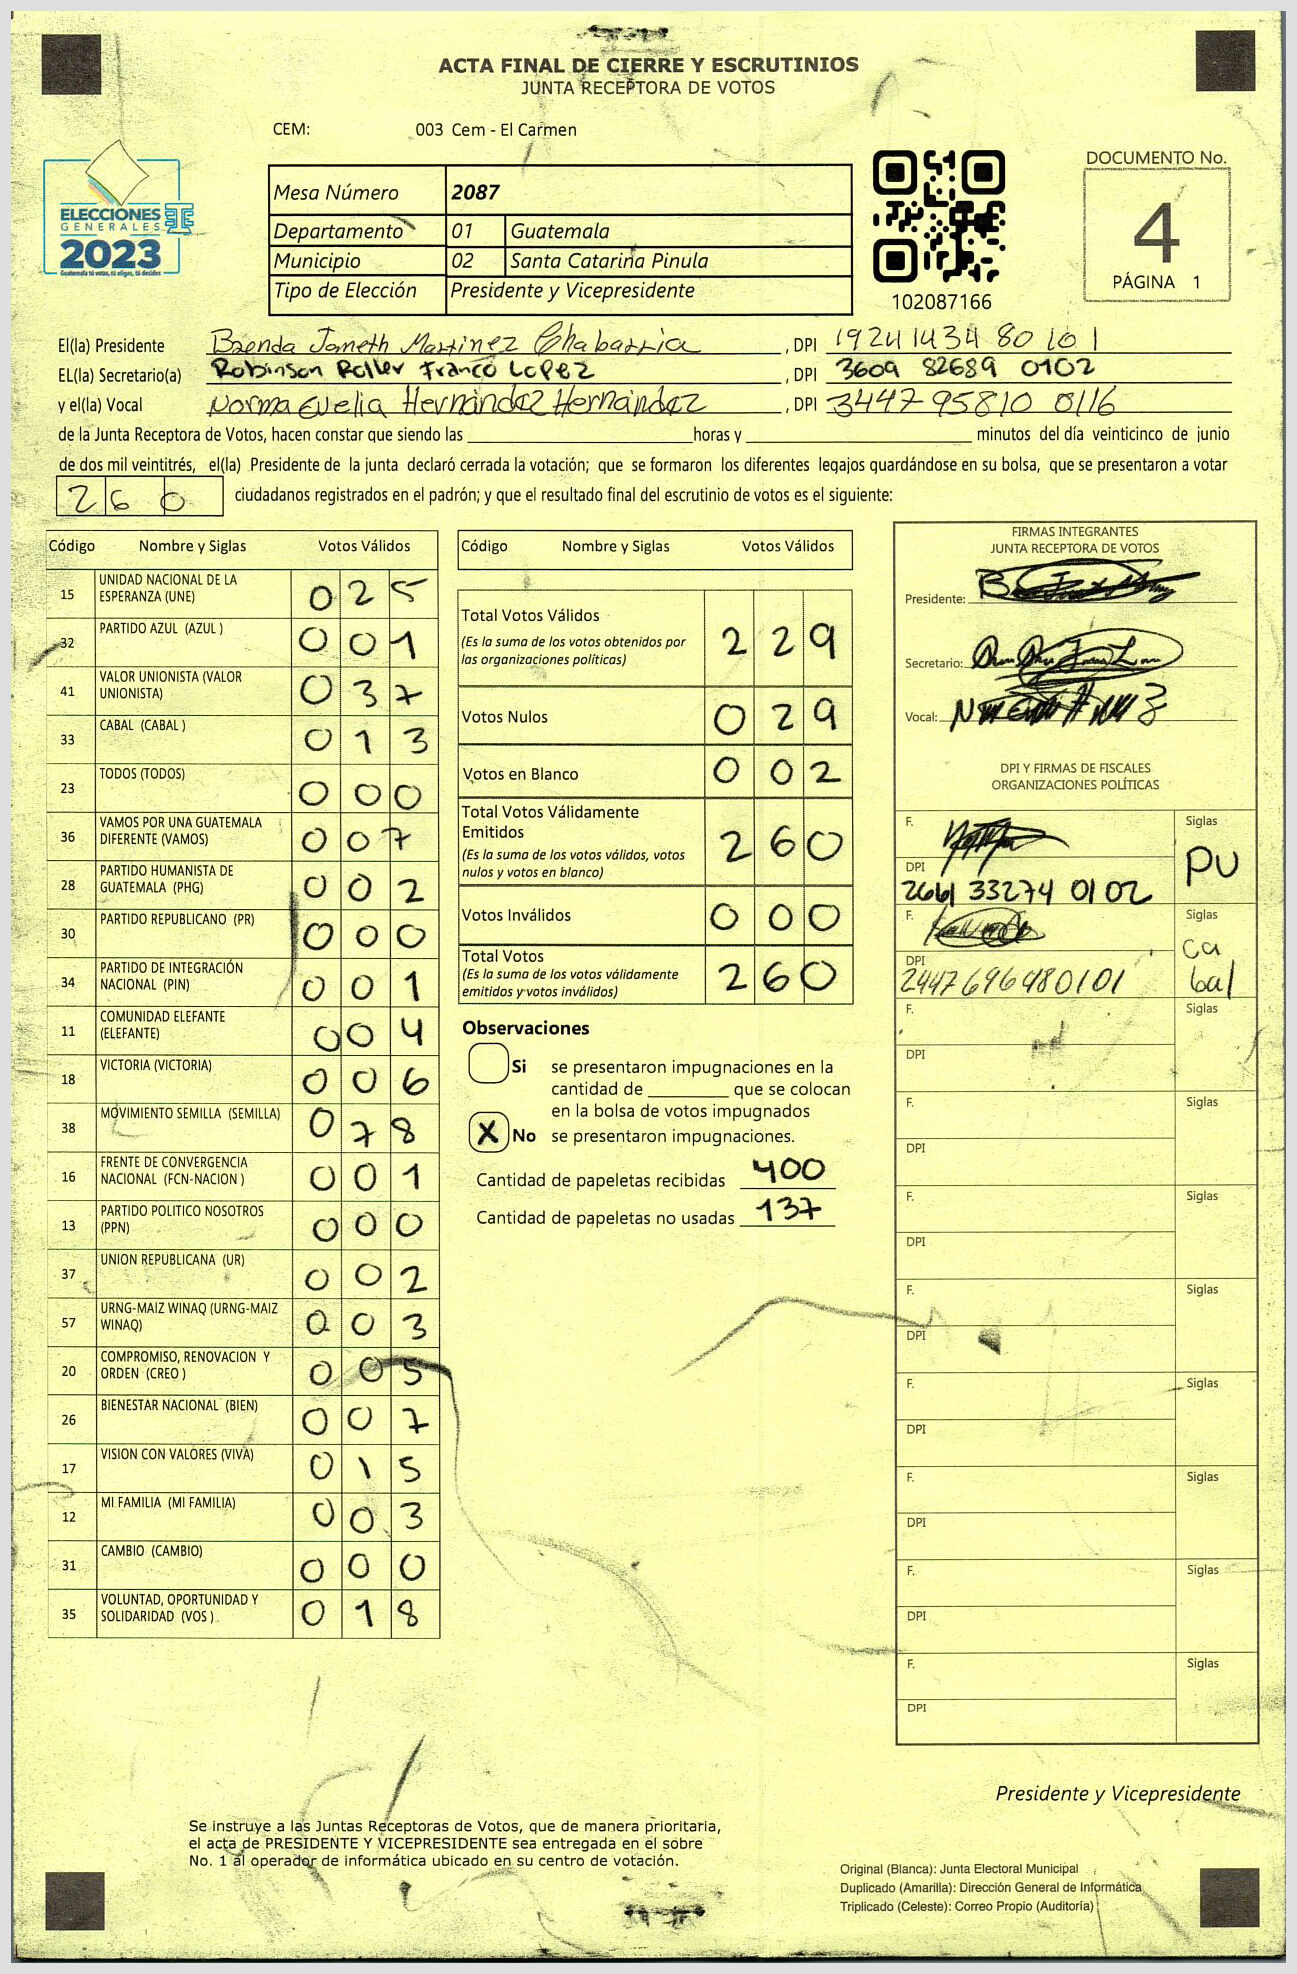 ACTA FINAL DE CIERRE Y ESCRUTINIOS
JUNTA RECEPTORA DE VOTOS
CEM: 003 Cem - El Carmen
ELECCIONES
GENERALES
2023
Guatemala tú votas, tú eliges, tú decides
Mesa Número 2087
Departamento 01 Guatemala
Municipio 02 Santa Catarina Pinula
Tipo de Elección Presidente y Vicepresidente
102087166
DOCUMENTO No.
4
PÁGINA 1
El(la) Presidente Brenda Janeth Martinez Chabarria, DPI 1924143480101
EL(la) Secretario(a) Robinson Roller Franco Lopez, DPI 3609 82689 0102
y el(la) Vocal Norma Evelia Hernández Hernández, DPI 3447 95810 0116
de la Junta Receptora de Votos, hacen constar que siendo las horas y minutos del día veinticinco de junio
de dos mil veintitrés, el(la) Presidente de la junta declaró cerrada la votación; que se formaron los diferentes legajos guardándose en su bolsa, que se presentaron a votar
260 ciudadanos registrados en el padrón; y que el resultado final del escrutinio de votos es el siguiente:
Código Nombre y Siglas Votos Válidos
15 UNIDAD NACIONAL DE LA ESPERANZA (UNE) 025
32 PARTIDO AZUL (AZUL ) 001
41 VALOR UNIONISTA (VALOR UNIONISTA) 037
33 CABAL (CABAL ) 013
23 TODOS (TODOS) 000
36 VAMOS POR UNA GUATEMALA DIFERENTE (VAMOS) 007
28 PARTIDO HUMANISTA DE GUATEMALA (PHG) 002
30 PARTIDO REPUBLICANO (PR) 000
34 PARTIDO DE INTEGRACIÓN NACIONAL (PIN) 001
11 COMUNIDAD ELEFANTE (ELEFANTE) 004
18 VICTORIA (VICTORIA) 006
38 MOVIMIENTO SEMILLA (SEMILLA) 078
16 FRENTE DE CONVERGENCIA NACIONAL (FCN-NACION ) 001
13 PARTIDO POLITICO NOSOTROS (PPN) 000
37 UNION REPUBLICANA (UR) 002
57 URNG-MAIZ WINAQ (URNG-MAIZ WINAQ) 003
20 COMPROMISO, RENOVACION Y ORDEN (CREO ) 005
26 BIENESTAR NACIONAL (BIEN) 007
17 VISION CON VALORES (VIVA) 015
12 MI FAMILIA (MI FAMILIA) 003
31 CAMBIO (CAMBIO) 000
35 VOLUNTAD, OPORTUNIDAD Y SOLIDARIDAD (VOS ) 018
Código Nombre y Siglas Votos Válidos
Total Votos Válidos 229
(Es la suma de los votos obtenidos por
las organizaciones políticas)
Votos Nulos 029
Votos en Blanco 002
Total Votos Válidamente
Emitidos 260
(Es la suma de los votos válidos, votos
nulos y votos en blanco)
Votos Inválidos 000
Total Votos 260
(Es la suma de los votos válidamente
emitidos y votos inválidos)
Observaciones
Si se presentaron impugnaciones en la
cantidad de que se colocan
en la bolsa de votos impugnados
X No se presentaron impugnaciones.
Cantidad de papeletas recibidas 400
Cantidad de papeletas no usadas 137
FIRMAS INTEGRANTES
JUNTA RECEPTORA DE VOTOS
Presidente:
Secretario:
Vocal:
DPI Y FIRMAS DE FISCALES
ORGANIZACIONES POLÍTICAS
F. Siglas
PU
DPI
2661 33274 0102
F. Siglas
ca
bal
DPI
2447696480101
F. Siglas
DPI
F. Siglas
DPI
F. Siglas
DPI
F. Siglas
DPI
F. Siglas
DPI
F. Siglas
DPI
F. Siglas
DPI
F. Siglas
DPI
Presidente y Vicepresidente
Se instruye a las Juntas Receptoras de Votos, que de manera prioritaria,
el acta de PRESIDENTE Y VICEPRESIDENTE sea entregada en el sobre
No. 1 al operador de informática ubicado en su centro de votación.
Original (Blanca): Junta Electoral Municipal
Duplicado (Amarilla): Dirección General de Informática
Triplicado (Celeste): Correo Propio (Auditoría)